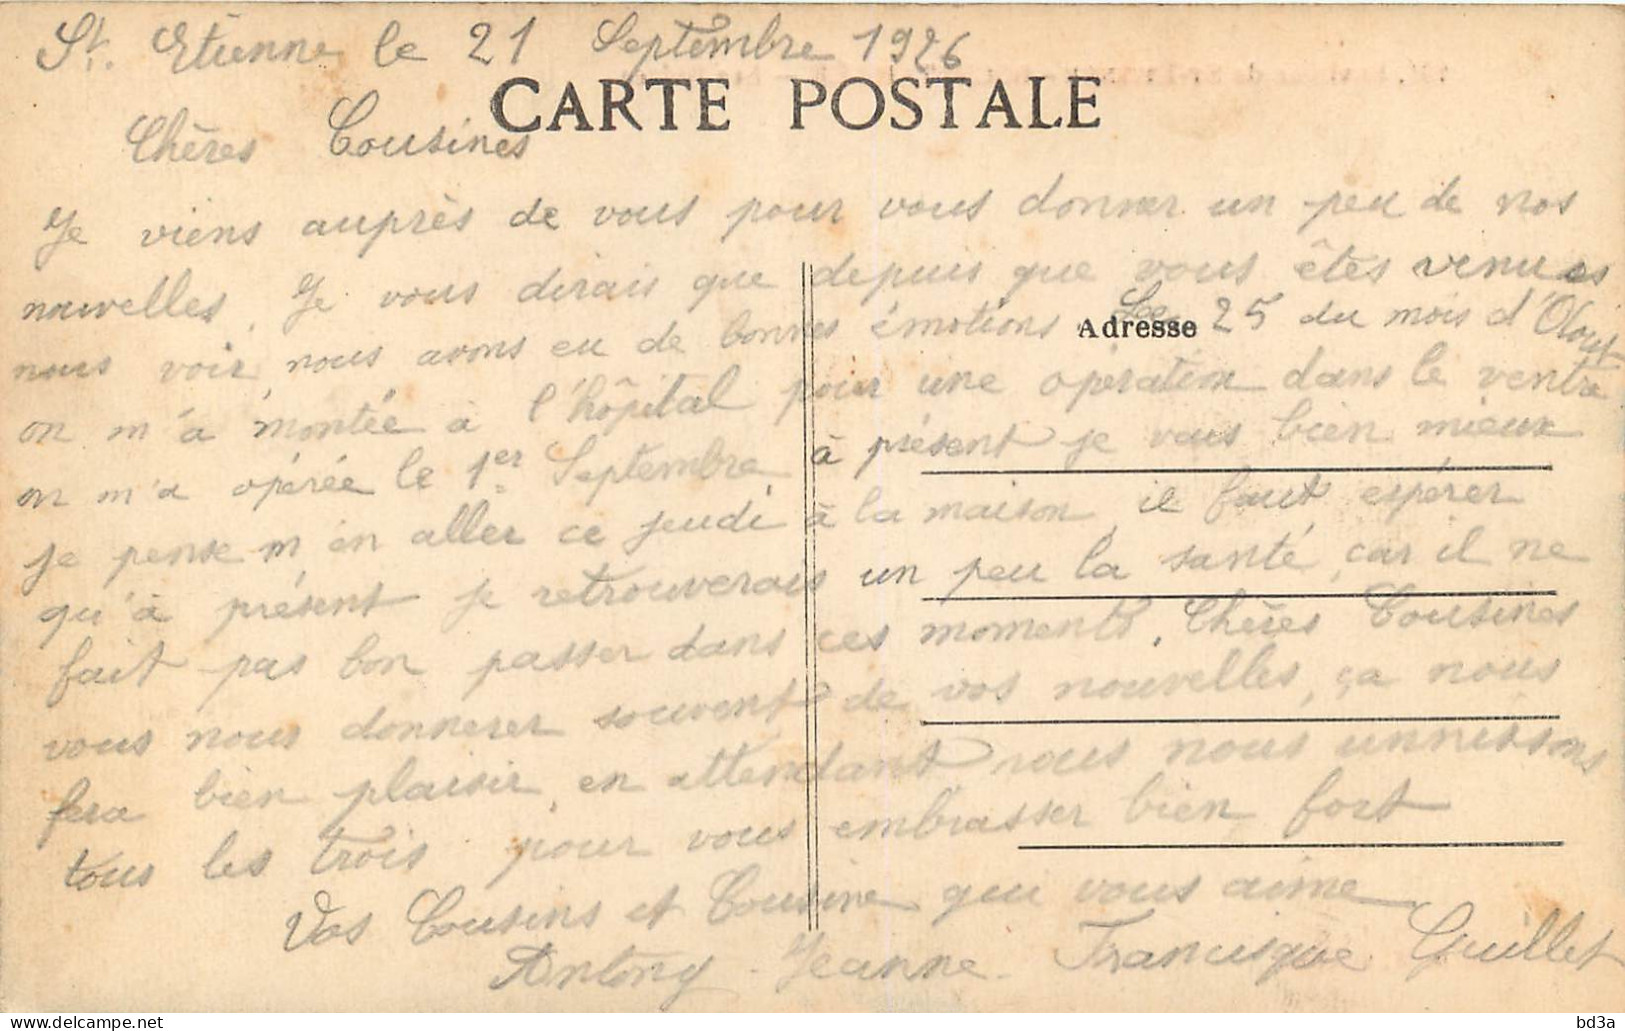 St. Etienne le 21 Septembre 1926
CARTE POSTALE
Chères Cousines
Je viens auprès de vous pour vous donner un peu de nos
nouvelles. Je vous dirais que depuis que vous êtes venues
nous voir nous avons eu de bonnes émotions Le 25 du mois d'Olout
Adresse
on m'a montée à l'hôpital pour une opération dans le ventre
on m'a opérée le 1er Septembre, à présent je vais bien mieux
je pense m'en aller ce jeudi à la maison, il faut espérer
qu'à présent je retrouverais un peu la santé, car il ne
fait pas bon passer dans ces moments. Chères Cousines
vous nous donnerer souvent de vos nouvelles, ça nous
fera bien plaisir, en attendant nous nous unnissons
tous les trois pour vous embrasser bien fort
Vos Cousins et Cousine qui vous aime
Antony - Jeanne - Francisque Guillet
bd3a